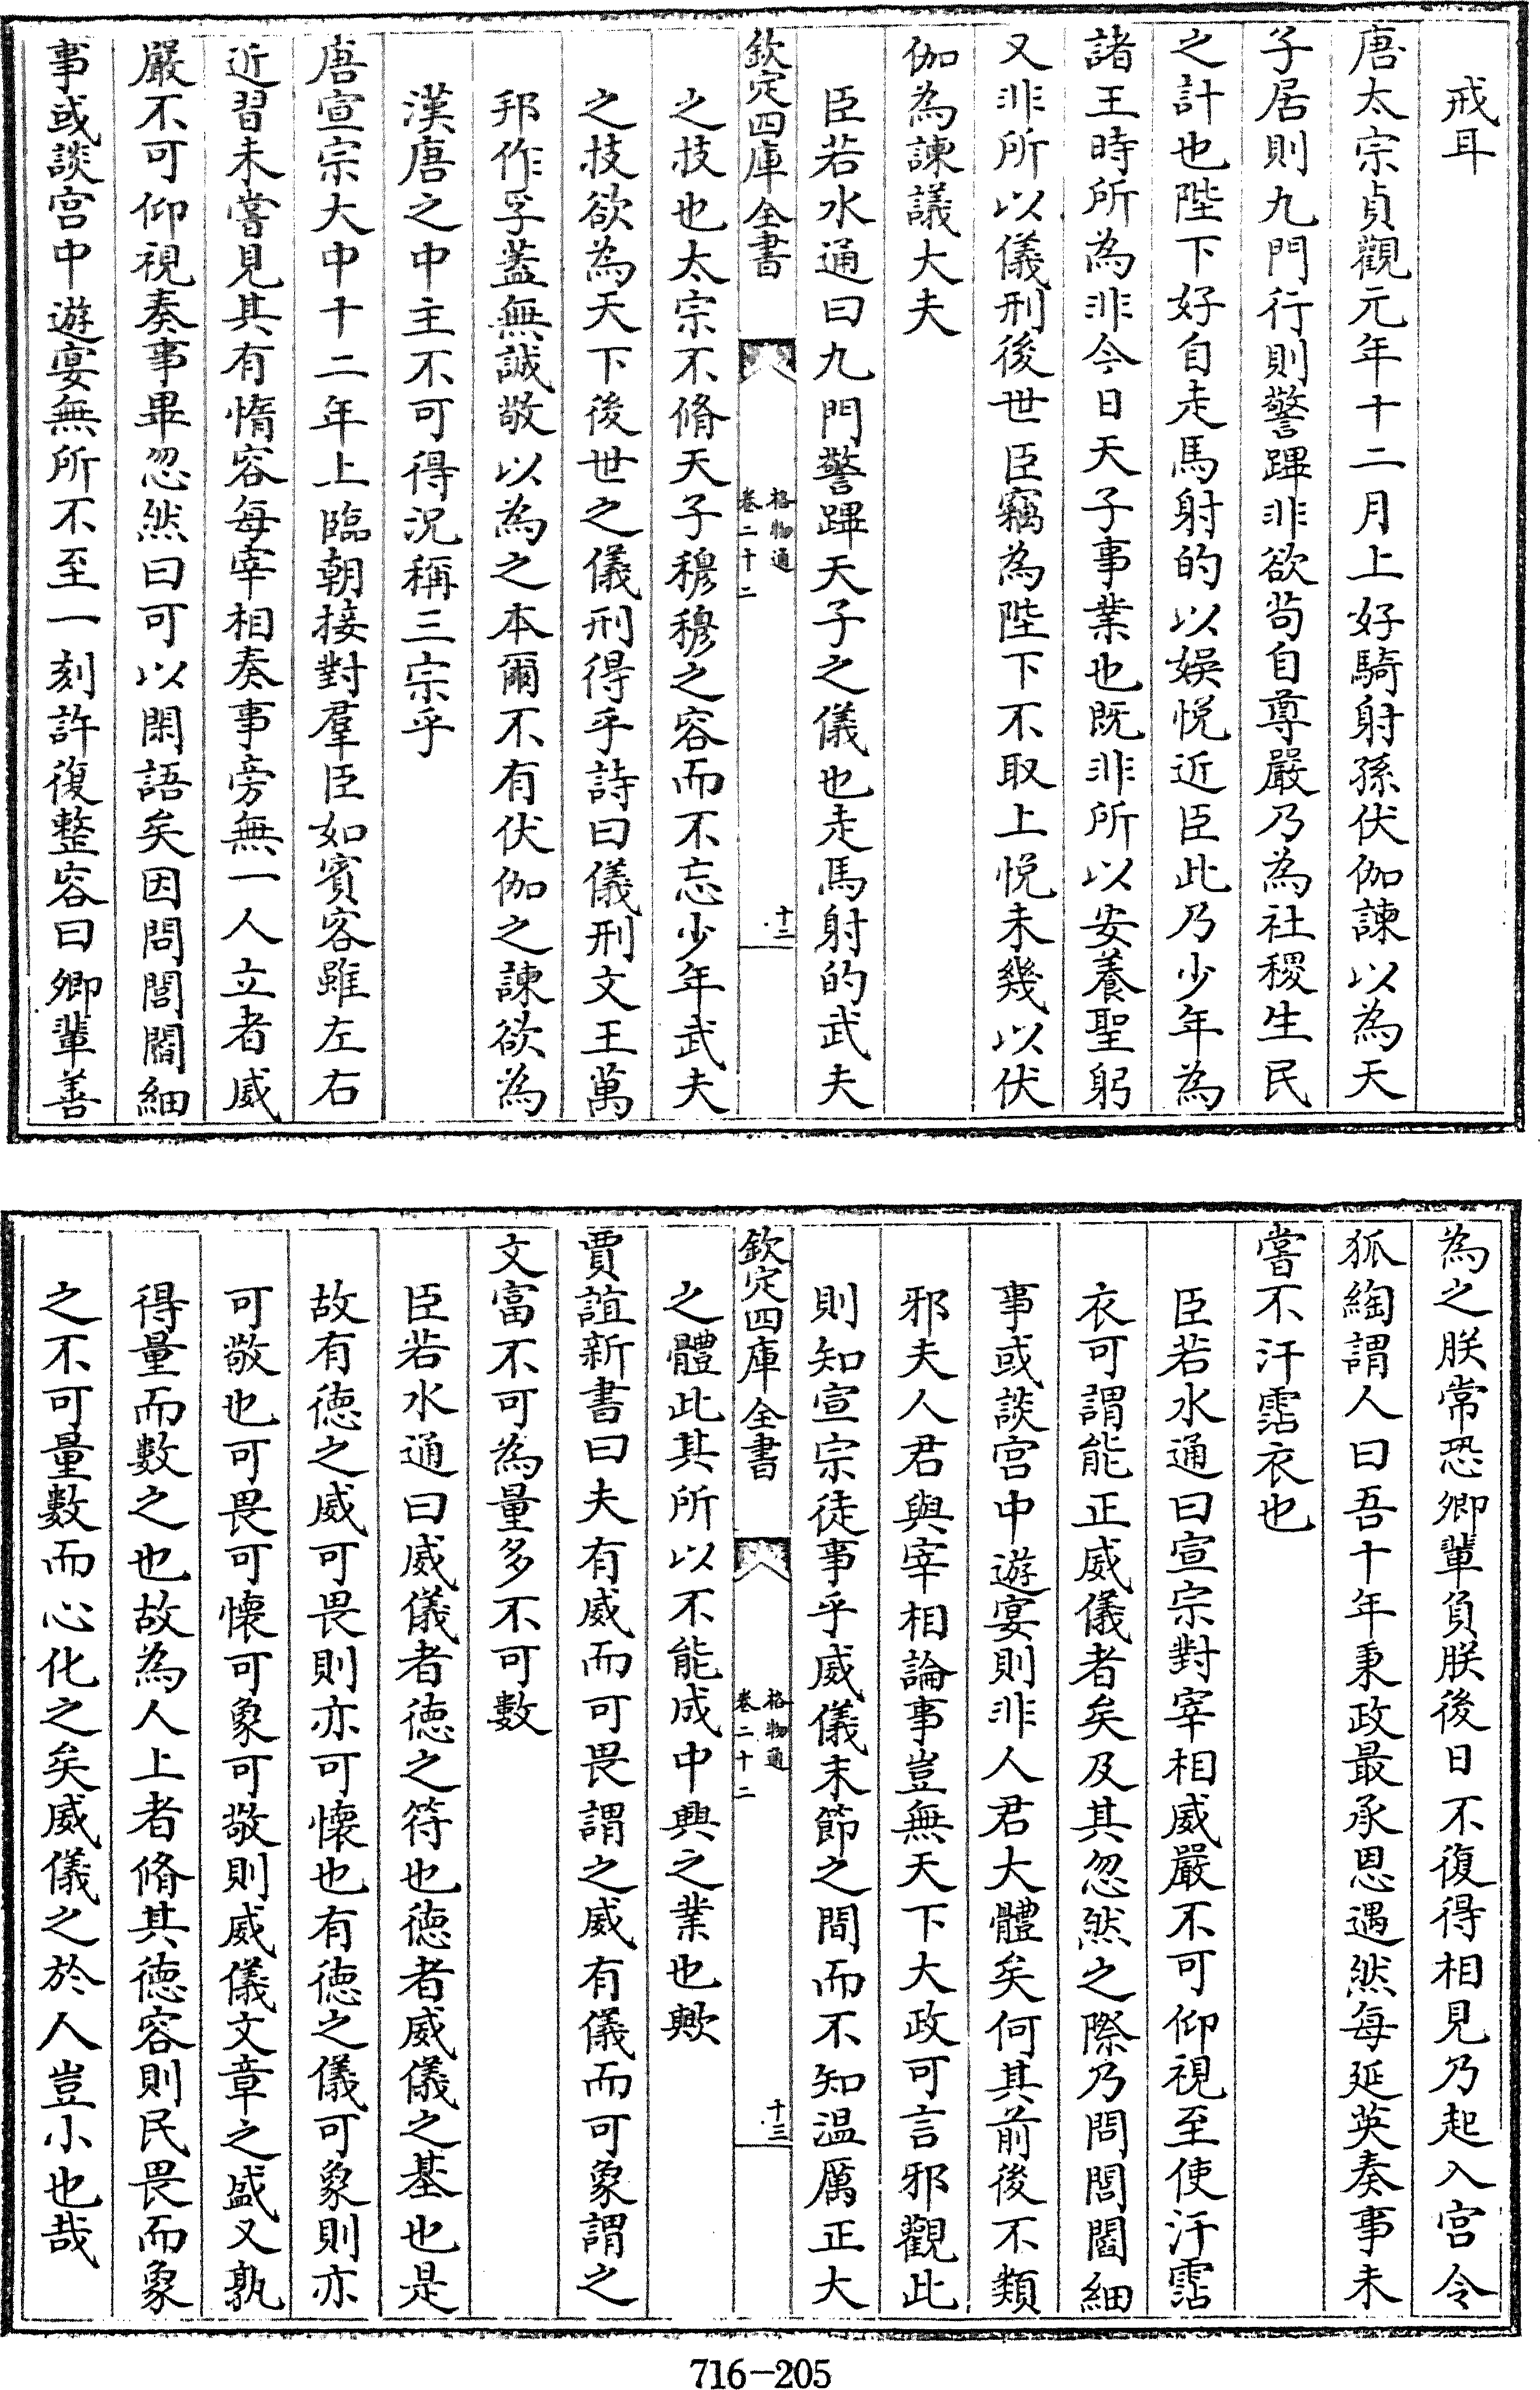 戒耳
唐太宗貞觀元年十二月上好騎射孫伏伽諫以為天
子居則九門行則警蹕非欲苟自尊嚴乃為社稷生民
之計也陛下好自走馬射的以娛悅近臣此乃少年為
諸王時所為非今日天子事業也既非所以安養聖躬
又非所以儀刑後世臣竊為陛下不取上悅未幾以伏
伽為諫議大夫
臣若水通曰九門警蹕天子之儀也走馬射的武夫
欽定四庫全書
格物通
卷二十二
十二
之技也太宗不脩天子穆穆之容而不忘少年武夫
之技欲為天下後世之儀刑得乎詩曰儀刑文王萬
邦作孚蓋無誠敬以為之本爾不有伏伽之諫欲為
漢唐之中主不可得況稱三宗乎
唐宣宗大中十二年上臨朝接對羣臣如賓客雖左右
近習未嘗見其有惰容每宰相奏事旁無一人立者威
嚴不可仰視奏事畢忽然曰可以閑語矣因問閭閻細
事或談宮中遊宴無所不至一刻許復整容曰卿輩善
為之朕常恐卿輩負朕後日不復得相見乃起入宮令
狐綯謂人曰吾十年秉政最承恩遇然每延英奏事未
嘗不汗霑衣也
臣若水通曰宣宗對宰相威嚴不可仰視至使汗霑
衣可謂能正威儀者矣及其忽然之際乃問閭閻細
事或談宮中遊宴則非人君大體矣何其前後不類
邪夫人君與宰相論事豈無天下大政可言邪觀此
則知宣宗徒事乎威儀末節之間而不知溫厲正大
欽定四庫全書
格物通
卷二十二
十三
之體此其所以不能成中興之業也歟
賈誼新書曰夫有威而可畏謂之威有儀而可象謂之
文富不可為量多不可數
臣若水通曰威儀者德之符也德者威儀之基也是
故有德之威可畏則亦可懷也有德之儀可象則亦
可敬也可畏可懷可象可敬則威儀文章之盛又孰
得量而數之也故為人上者脩其德容則民畏而象
之不可量數而心化之矣威儀之於人豈小也哉
716-205